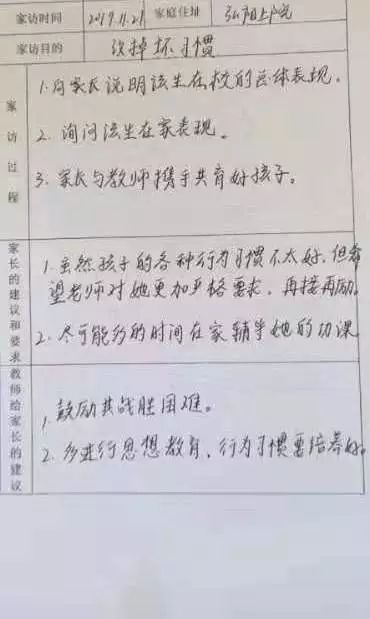 家访时间 2019.11.21 家庭住址
家访目的 改掉坏习惯
家访过程
1.向家长说明该生在校的总体表现。
2. 询问该生在家表现。
3. 家长与教师携手共育好孩子。
家长的建议和要求
1.虽然孩子的各种行为习惯不太好,但希
望老师对她更加严格要求,再接再励。
2. 尽可能多的时间在家辅导她的功课
教师给家长的建议
1. 鼓励其战胜困难。
2. 多进行思想教育,行为习惯要培养好。